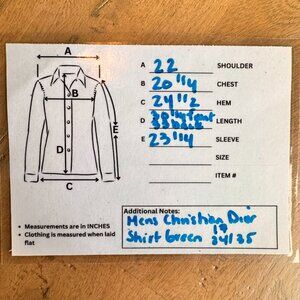 A
B
D
E
C
A 22 SHOULDER
B 20 1/4 CHEST
C 24 1/2 HEM
D LENGTH
E 23 1/4 SLEEVE
SIZE
ITEM #
Additional Notes:
Mens Christian Dior
Shirt Green
34/35
• Measurements are in INCHES
• Clothing is measured when laid
flat